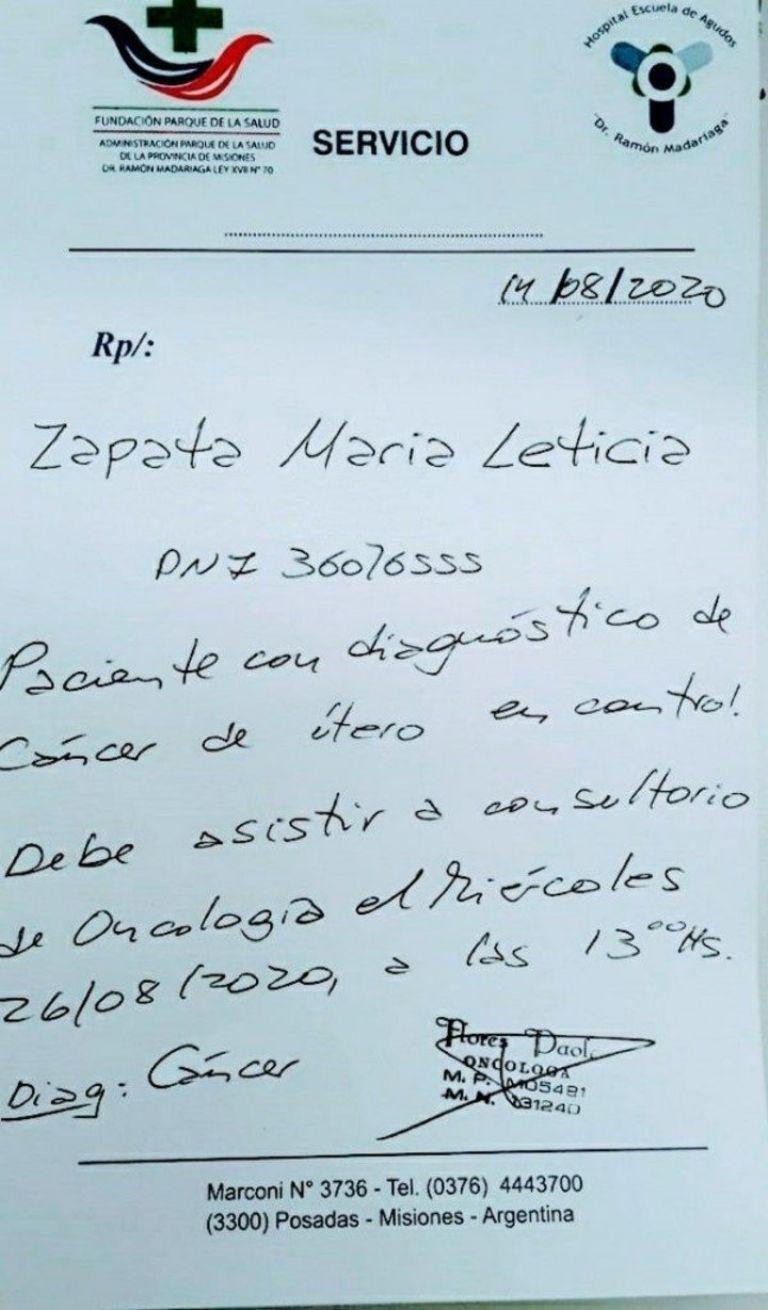 FUNDACIÓN PARQUE DE LA SALUD
ADMINISTRACIÓN PARQUE DE LA SALUD
DE LA PROVINCIA DE MISIONES
DR. RAMÓN MADARIAGA LEY XVII N° 70
SERVICIO
Hospital Escuela de Agudos
"Dr. Ramón Madariaga"
14/08/2020
Rp/:
Zapata Maria Leticia
DNI 36076555
Paciente con diagnóstico de
Cáncer de útero en control.
Debe asistir a consultorio
de Oncologia el Miércoles
26/08/2020, a las 13°°Hs.
Diag: Cáncer
Flores Paol
ONCOLOGA
M. P. M05481
M. N. 131240
Marconi N° 3736 - Tel. (0376) 4443700
(3300) Posadas - Misiones - Argentina